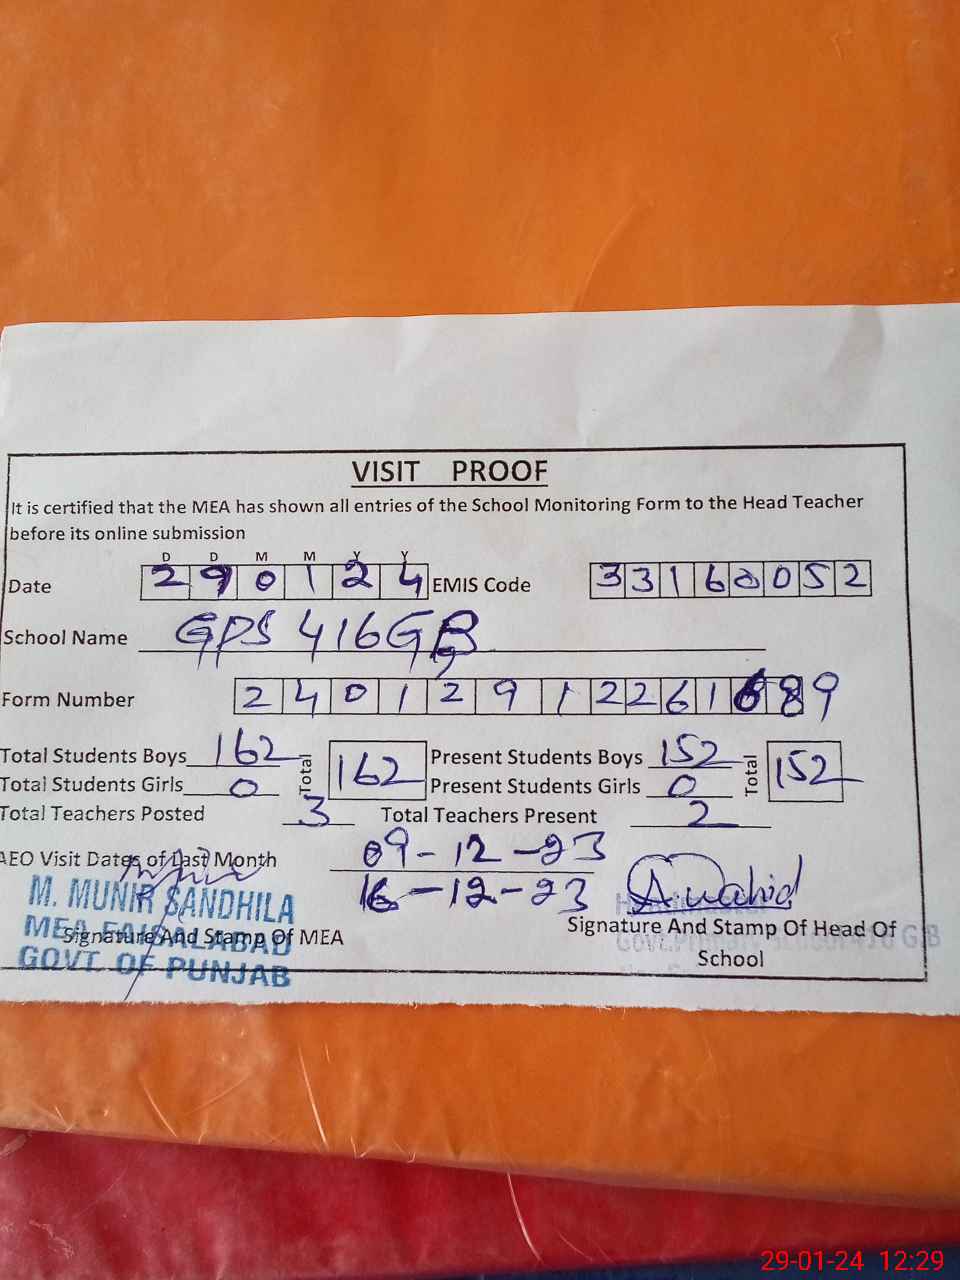 VISIT PROOF
It is certified that the MEA has shown all entries of the School Monitoring Form to the Head Teacher
before its online submission
D D M M Y Y
Date 2 9 0 1 2 4 EMIS Code 3 3 1 6 0 0 5 2
School Name GPS 416 GB
Form Number 2 4 0 1 2 9 1 2 2 6 1 6 8 9
Total Students Boys 162 Total 162 Present Students Boys 152 Total 152
Total Students Girls 0 Present Students Girls 0
Total Teachers Posted 3 Total Teachers Present 2
AEO Visit Dates of Last Month 09-12-23
16-12-23
M. MUNIR SANDHILA
MEA FAISALABAD
GOVT. OF PUNJAB
Signature And Stamp Of MEA
Signature And Stamp Of Head Of
School
29-01-24 12:29